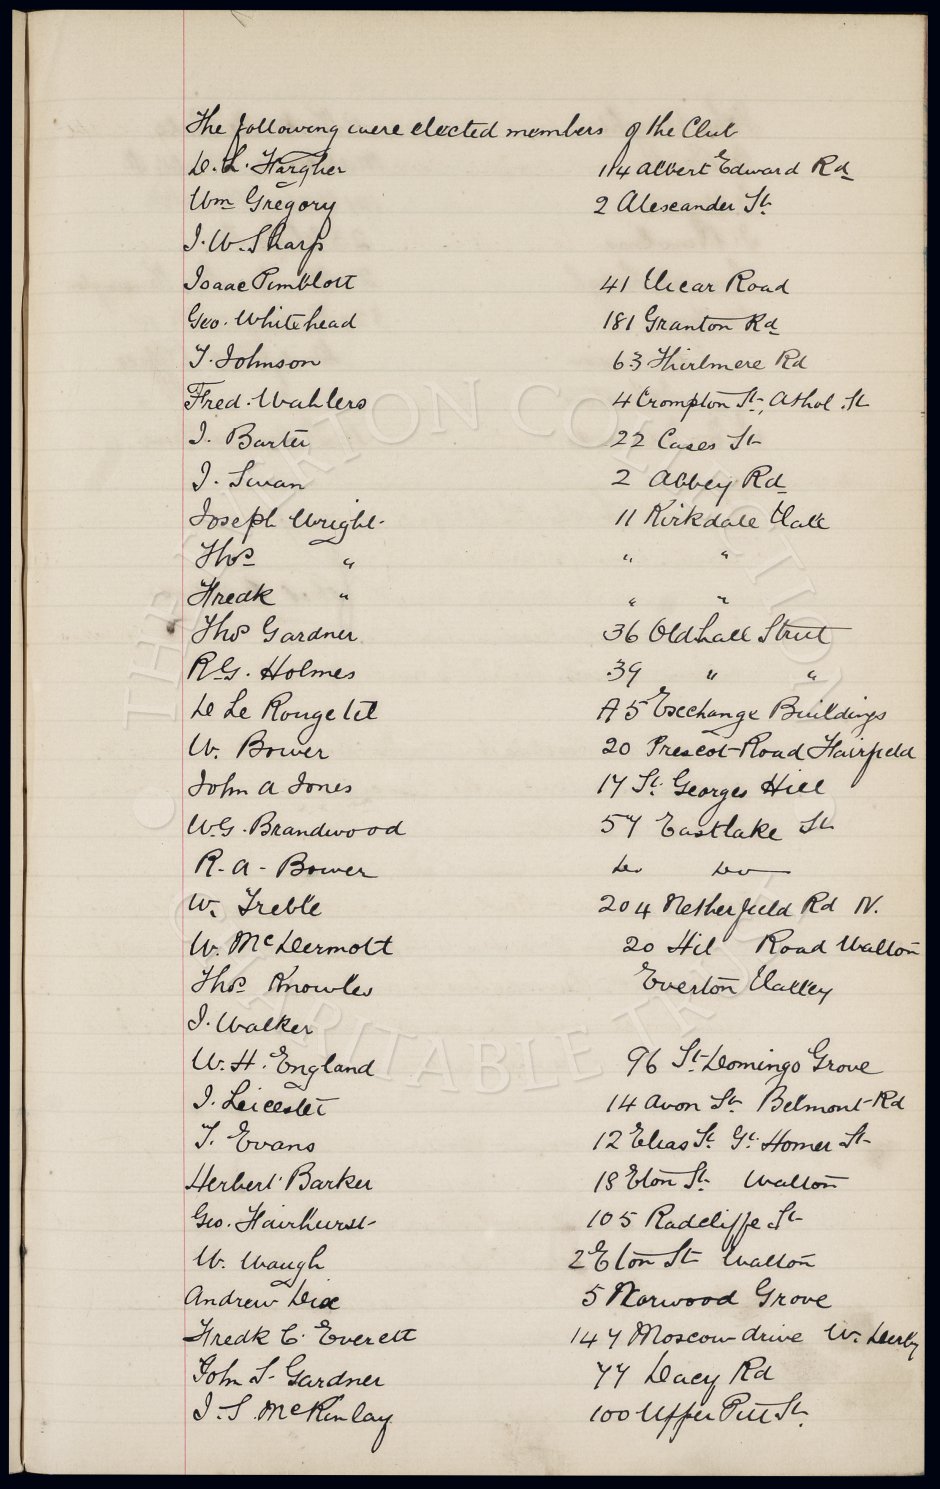 The following were elected members of the Club
D. L. Hargher 114 Albert Edward Rd
Wm Gregory 2 Alexander St
J. W. Sharp
Isaac Pimblott 41 Vicar Road
Geo. Whitehead 181 Granton Rd
T. Johnson 63 Thirlmere Rd
Fred. Wahlers 4 Crompton St, Athol St
J. Barter 22 Cases St
J. Swan 2 Abbey Rd
Joseph Wright 11 Kirkdale Vale
Thos " " "
Fredk " " "
Thos Gardner 36 Oldhall Street
R.G. Holmes 39 " "
D Le Rougetel A 5 Exchange Buildings
W. Bower 20 Prescot Road Fairfield
John A Jones 17 St. Georges Hill
W.G. Brandwood 57 Eastlake St
R. A. Bower Do Do
W. Treble 204 Netherfield Rd N.
W. McDermott 20 Road Walton
Thos Knowles Everton Valley
J. Walker
W. H. England 96 St Domingo Grove
J. Leicester 14 Avon St Belmont Rd
T. Evans 12 Elias St. Gt. Homer St
Herbert Barker 18 Eton St. Walton
Geo. Fairhurst 105 Radcliffe St
W. Waugh 2 Eton St Walton
Andrew Dix 5 Norwood Grove
Fredk C. Everett 147 Moscow drive W. Derby
John S. Gardner 77 Dacy Rd
J. S. McKinlay 100 Upper Pitt St.
THE EVERTON COLLECTION
CHARITABLE TRUST